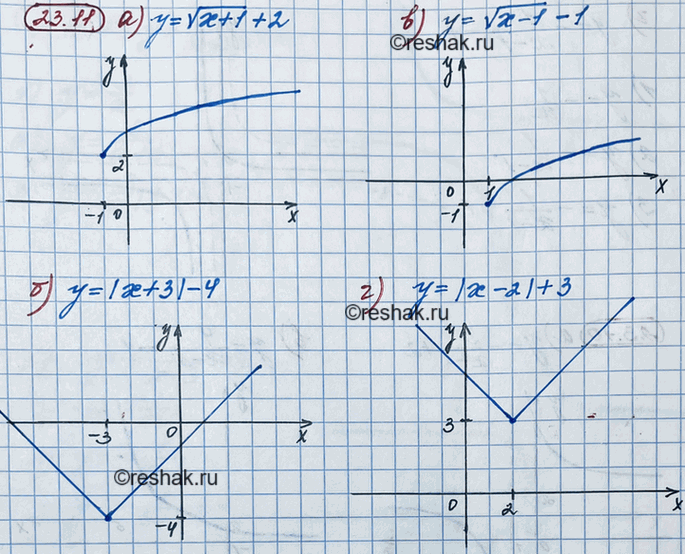 23.11. а) y = √x+1 + 2
в) y = √x-1 - 1
©reshak.ru
y
2
-1 0 x
y
0 1 x
-1
б) y = |x+3| - 4
г) y = |x-2| + 3
©reshak.ru
y
-3 0 x
-4
©reshak.ru
y
3
0 2 x